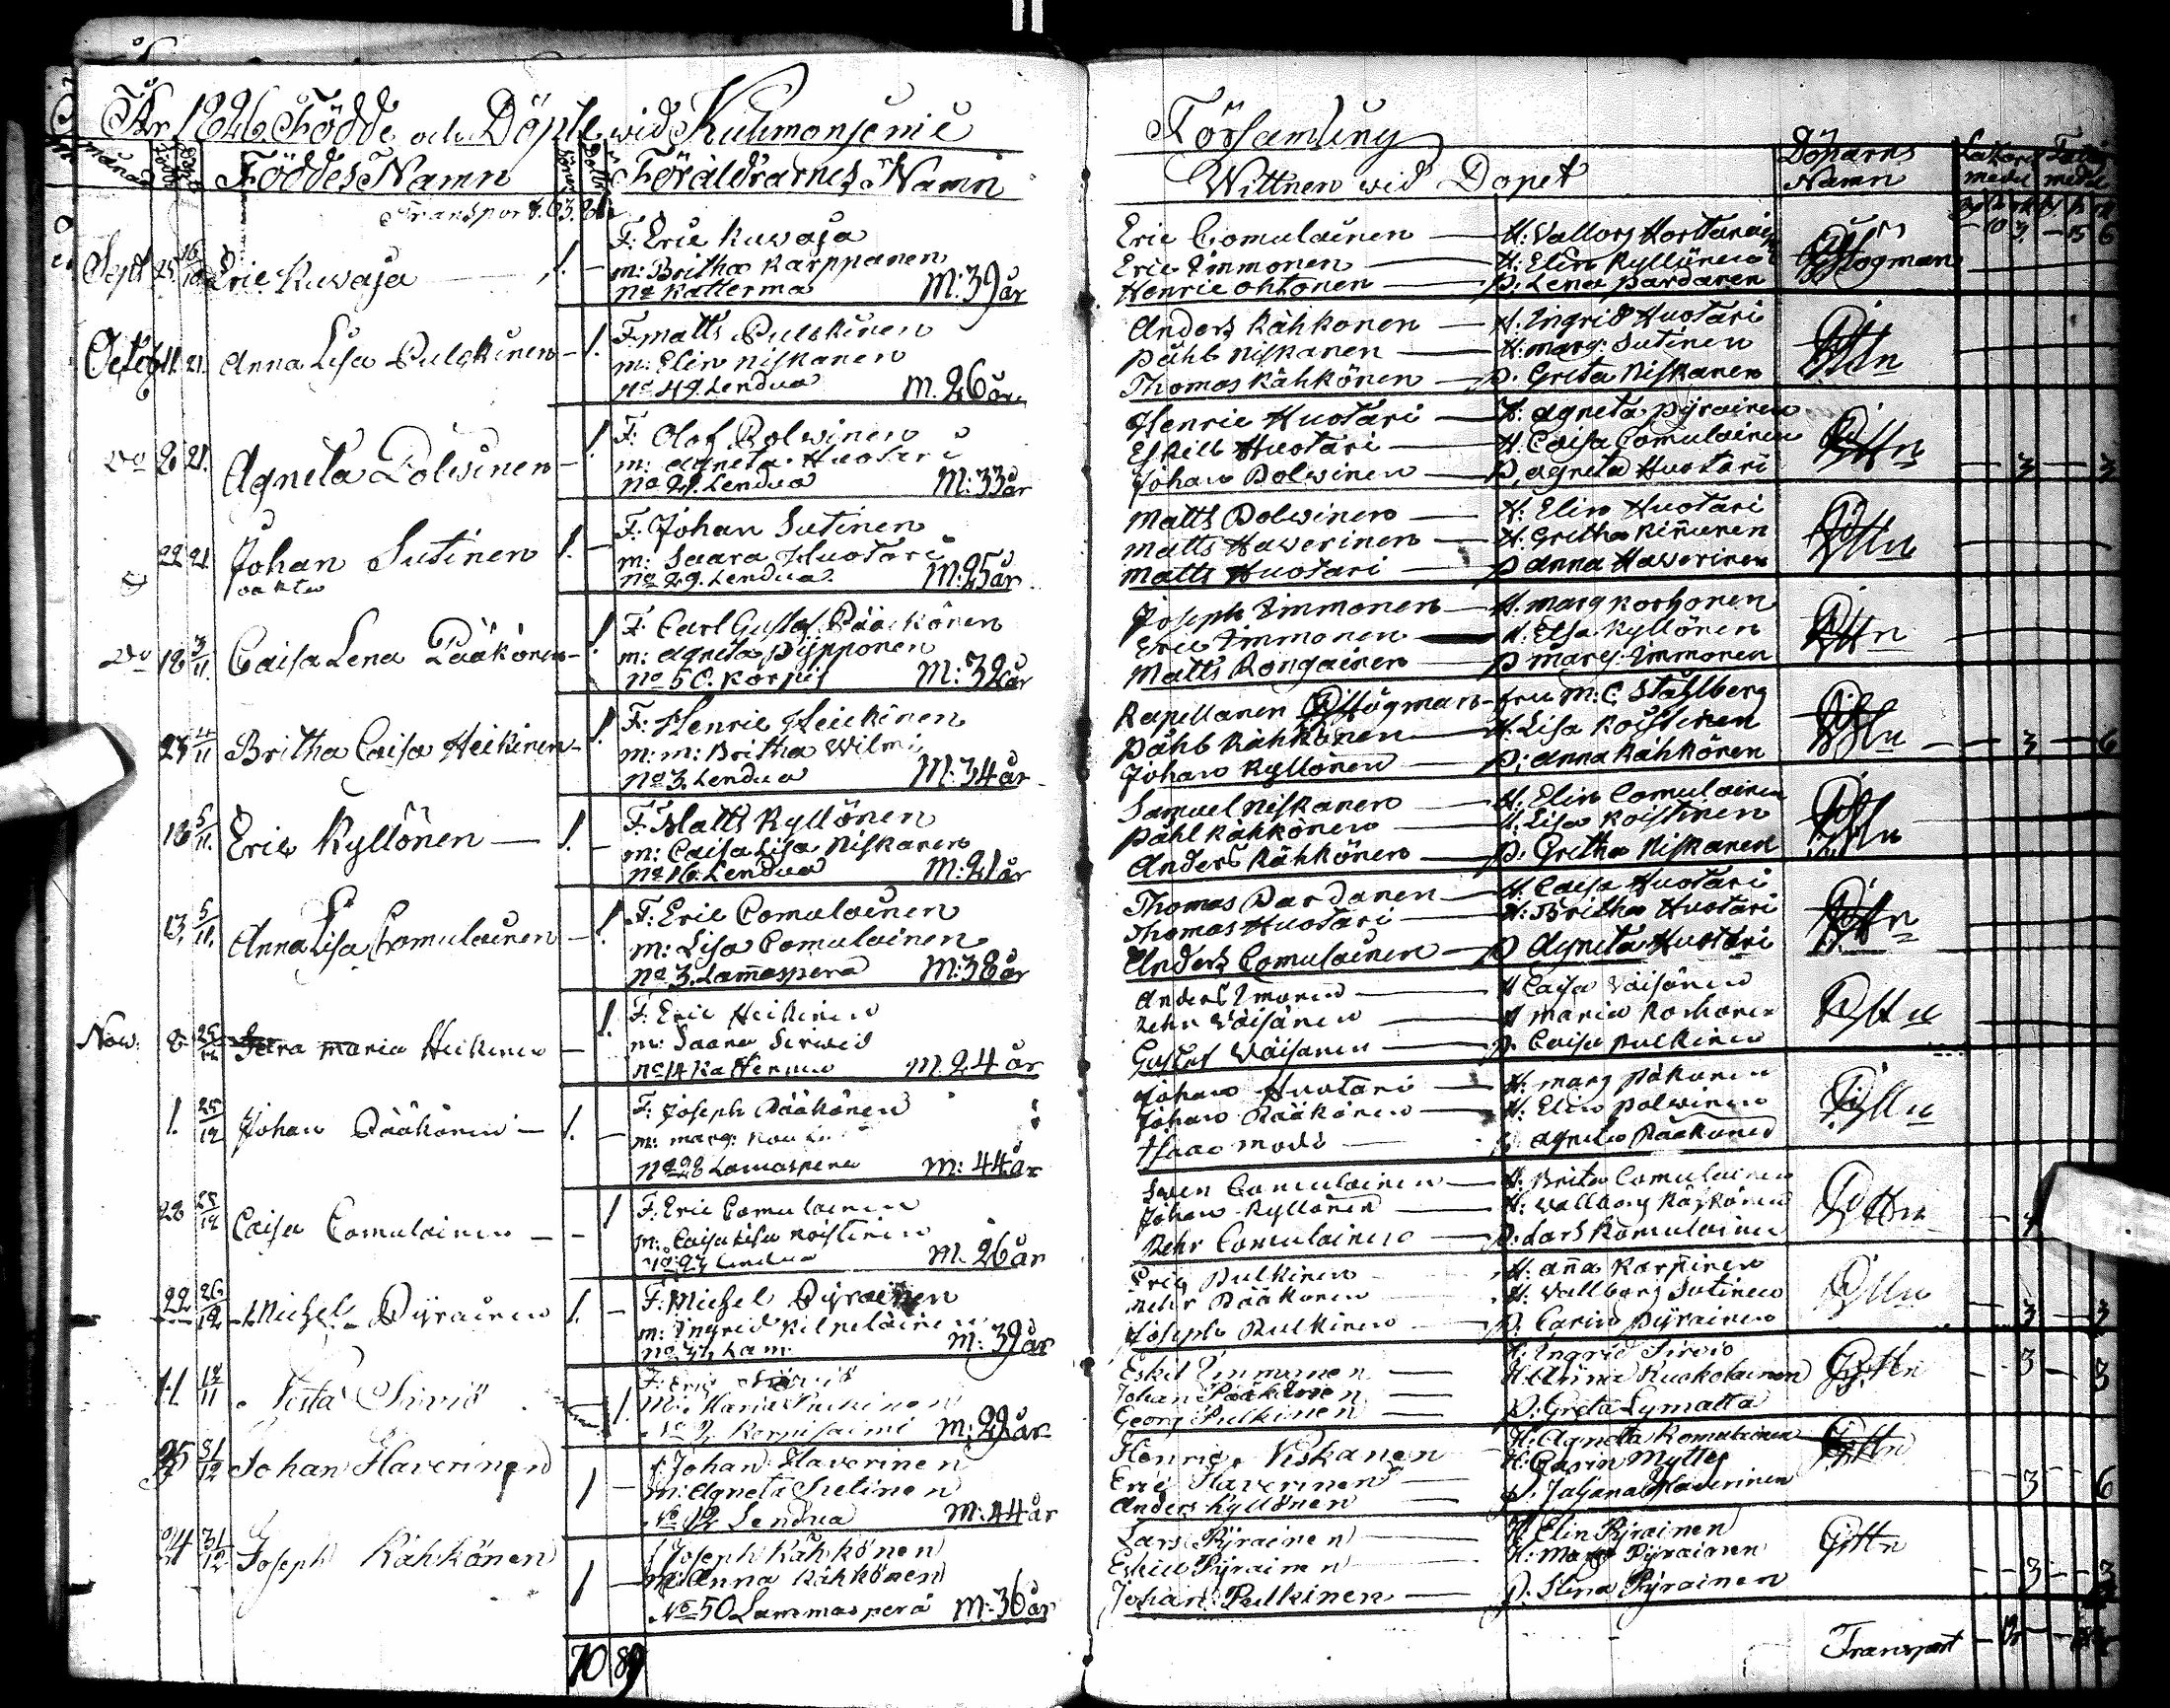 År 1826. Födde och Döpte wid Kuhmoniemi
Månad Födde Döpte Föddes Namn Söner Döttr Föräldrarnes Namn
Transport. 63. 81
Sept 25. 16/10 Eric Kuvaja 1. —
F: Eric Kuvaja
m: Britha Karppanen
No Katterma M: 39 år
Octob 11. 21. Anna Lisa Pulckinen — 1.
F. Matts Pulckinen
m: Elin Niskanen
No 49. Lendua M. 26 år
Do 20 21. Agneta Polvinen — 1
F: Olof Polvinen
m: Agneta Huotari
No 29. Lendua M: 33 år
22 21 Johan Sutinen 1. —
oäkta
F: Johan Sutinen
m: Saara Huotari
No 29. Lendua M: 25 år
Do 18 3/11. Caisa Lena Pääkönen — 1
F. Carl Gustaf Pääckönen
m: Agneta Pypponen
No 50. Korpis M: 32 år
25 4/11 Britha Caisa Heikinen — 1
F: Henric Heickinen
m: m: Britha Wilmi
No 3. Lendua M: 34 år
18 5/11. Eric Kyllönen — 1. —
F: Matts Kyllönen
m: Caisa Lisa Niskanen
No 16. Lendua M: 21 år
13. 5/11. Anna Lisa Comulainen — 1
F: Eric Comulainen
m: Lisa Comulainen
No 3. Lamaspera M: 38 år
Now: 8 25/12 Maria Heikinen — 1.
F. Eric Heikinen
m: Saara Sirviö
No 14 Katterma M. 24 år
1. 25/12 Johan Pääkönen — 1. —
F: Joseph Pääkönen
m: marg:
No 28 Lamaspera M: 44 år
28 25/12 Caisa Comulainen — 1
F: Eric Comulainen
m: Caisa Lisa Koistinen
No 27 Lendua M. 26 år
22 26/12 Michel Pyrainen 1. —
F: Michel Pyrainen
m: Ingrid Kilpeläinen
No 37 Lam: M: 39 år
11 12/11 Sirviö 1.
F: Eric Sirviö
m: Maria Pulkinen
No 2 Korpisalmi M: 22 år
25 31/12 Johan Haverinen 1 —
f: Johan Haverinen
m: Agneta Sutinen
No 12 Lendua M: 44 år
24 31/12 Joseph Kähkönen 1 —
f Joseph Kähkönen
m: Anna Kähkönen
No 50 Lammaspera M: 36 år
70 89
Församling
Wittnen wid Dopet Döparns Namn
Eric Comulainen — H: Vallborg
Eric Immonen — H: Elin Kyllönen
Henric Ohtonen — P: Lena Pardanen
Högman
Anders Kähkönen — H. Ingrid Huotari
Påhl Niskanen — H: marg: Sutinen
Thomas Kähkönen — P. Greta Niskanen
Henric Huotari — H: Agneta Pyrainen
Eskill Huotari — H. Caisa Comulainen
Johan Polvinen — P. Agneta Huotari 3 — 3
Matts Polvinen — H: Elin Huotari
Matts Haverinen — H. Gretha Kinunen
Matts Huotari — P Anna Haverinen
Joseph Immonen — H. marg Korhonen
Eric Immonen — H: Elsa Kyllönen
Matts Rongainen — P marg: Immonen
Kapellanen Högman — fru M: C. Ståhlberg
Påhl Kähkönen — H: Lisa Koistinen
Johan Kyllönen — P: Anna Kähkönen 3 — 6
Samuel Niskanen — H. Elin Comulainen
Påhl Kähkönen — H. Lisa Koistinen
Anders Kähkönen — P: Gretha Niskanen
Thomas Pardanen — H. Caisa Huotari
Thomas Huotari — H: Britha Huotari
Anders Comulainen — P Agneta Huotari
Anders Imonen — H Caisa Väisänen
Pehr Väisänen — H Maria Korhonen
Gustaf Väisanen — P. Caisa Pulkinen
Johan Huotari — H: marg Pääkönen
Johan Pääkönen — H: Elin Polvinen
Isaac Modi — P. Agneta Pääkönen
Sven Comulainen — H: Brita Comulainen
Johan Kyllönen — H: Wallborg
Pehr Comulainen — P. Lars Komulainen
Eric Pulkinen — H: Anna Karpinen
Pehr Pääkönen — H: Wallborg Sutinen
Joseph Pulkinen — P. Carin Pyrainen 3 — 3
Eskil Immonen — H: Ingrid Sirviö
Johan Pääkkönen — H. Anna Ruokolainen
Georg Pulkinen — P: Greta Lymatta 3 — 3
Henric Niskanen — H: Agneta Komulainen
Eric Haverinen — H: Carin Mytty
Anders Kyllönen — P. Haverinen 3 — 6
Lars Pyrainen — H Elin Pyrainen
Eskil Pyrainen — H: Marg Pyrainen
Johan Pulkinen — P. Stina Pyrainen 3 — 3
Transport